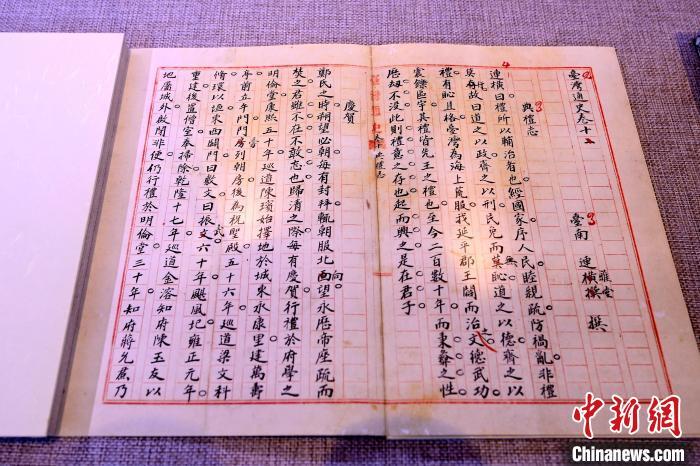 臺灣通史卷十
臺南 連橫 雅堂 撰
典禮志
連橫曰禮所以輔治者也經國家序人民睦親疏防禍亂非禮
莫由故曰道之以政齊之以刑民免而無恥道之以德齊之以
禮有恥且格臺灣為海上荒服我延平郡王闢而治之文德武功
震鑠區宇其禮皆先王之禮也至今二百數十年而秉彝之性
歷劫不沒此則禮意之存也起而興之是在君子
慶賀
鄭氏之時朔望必朝每有封拜輒朝服北向望永曆帝座疏而
焚之君雖不在不敢忘也歸清之際每有慶賀行禮於府學之
明倫堂康熙五十年巡道陳璸始擇地於城東永康里建萬壽
宮前立午門門房列朝房後為祝聖殿五十六年巡道梁文科
脩環以垣東西闢門曰敷文曰振武六十年颶風圮雍正元年
重建後置僧室奉掃除乾隆十七年巡道金溶知府陳玉友以
地屬城外啟閉非便仍行禮於明倫堂三十年知府蔣允焄乃
中新网
Chinanews.com